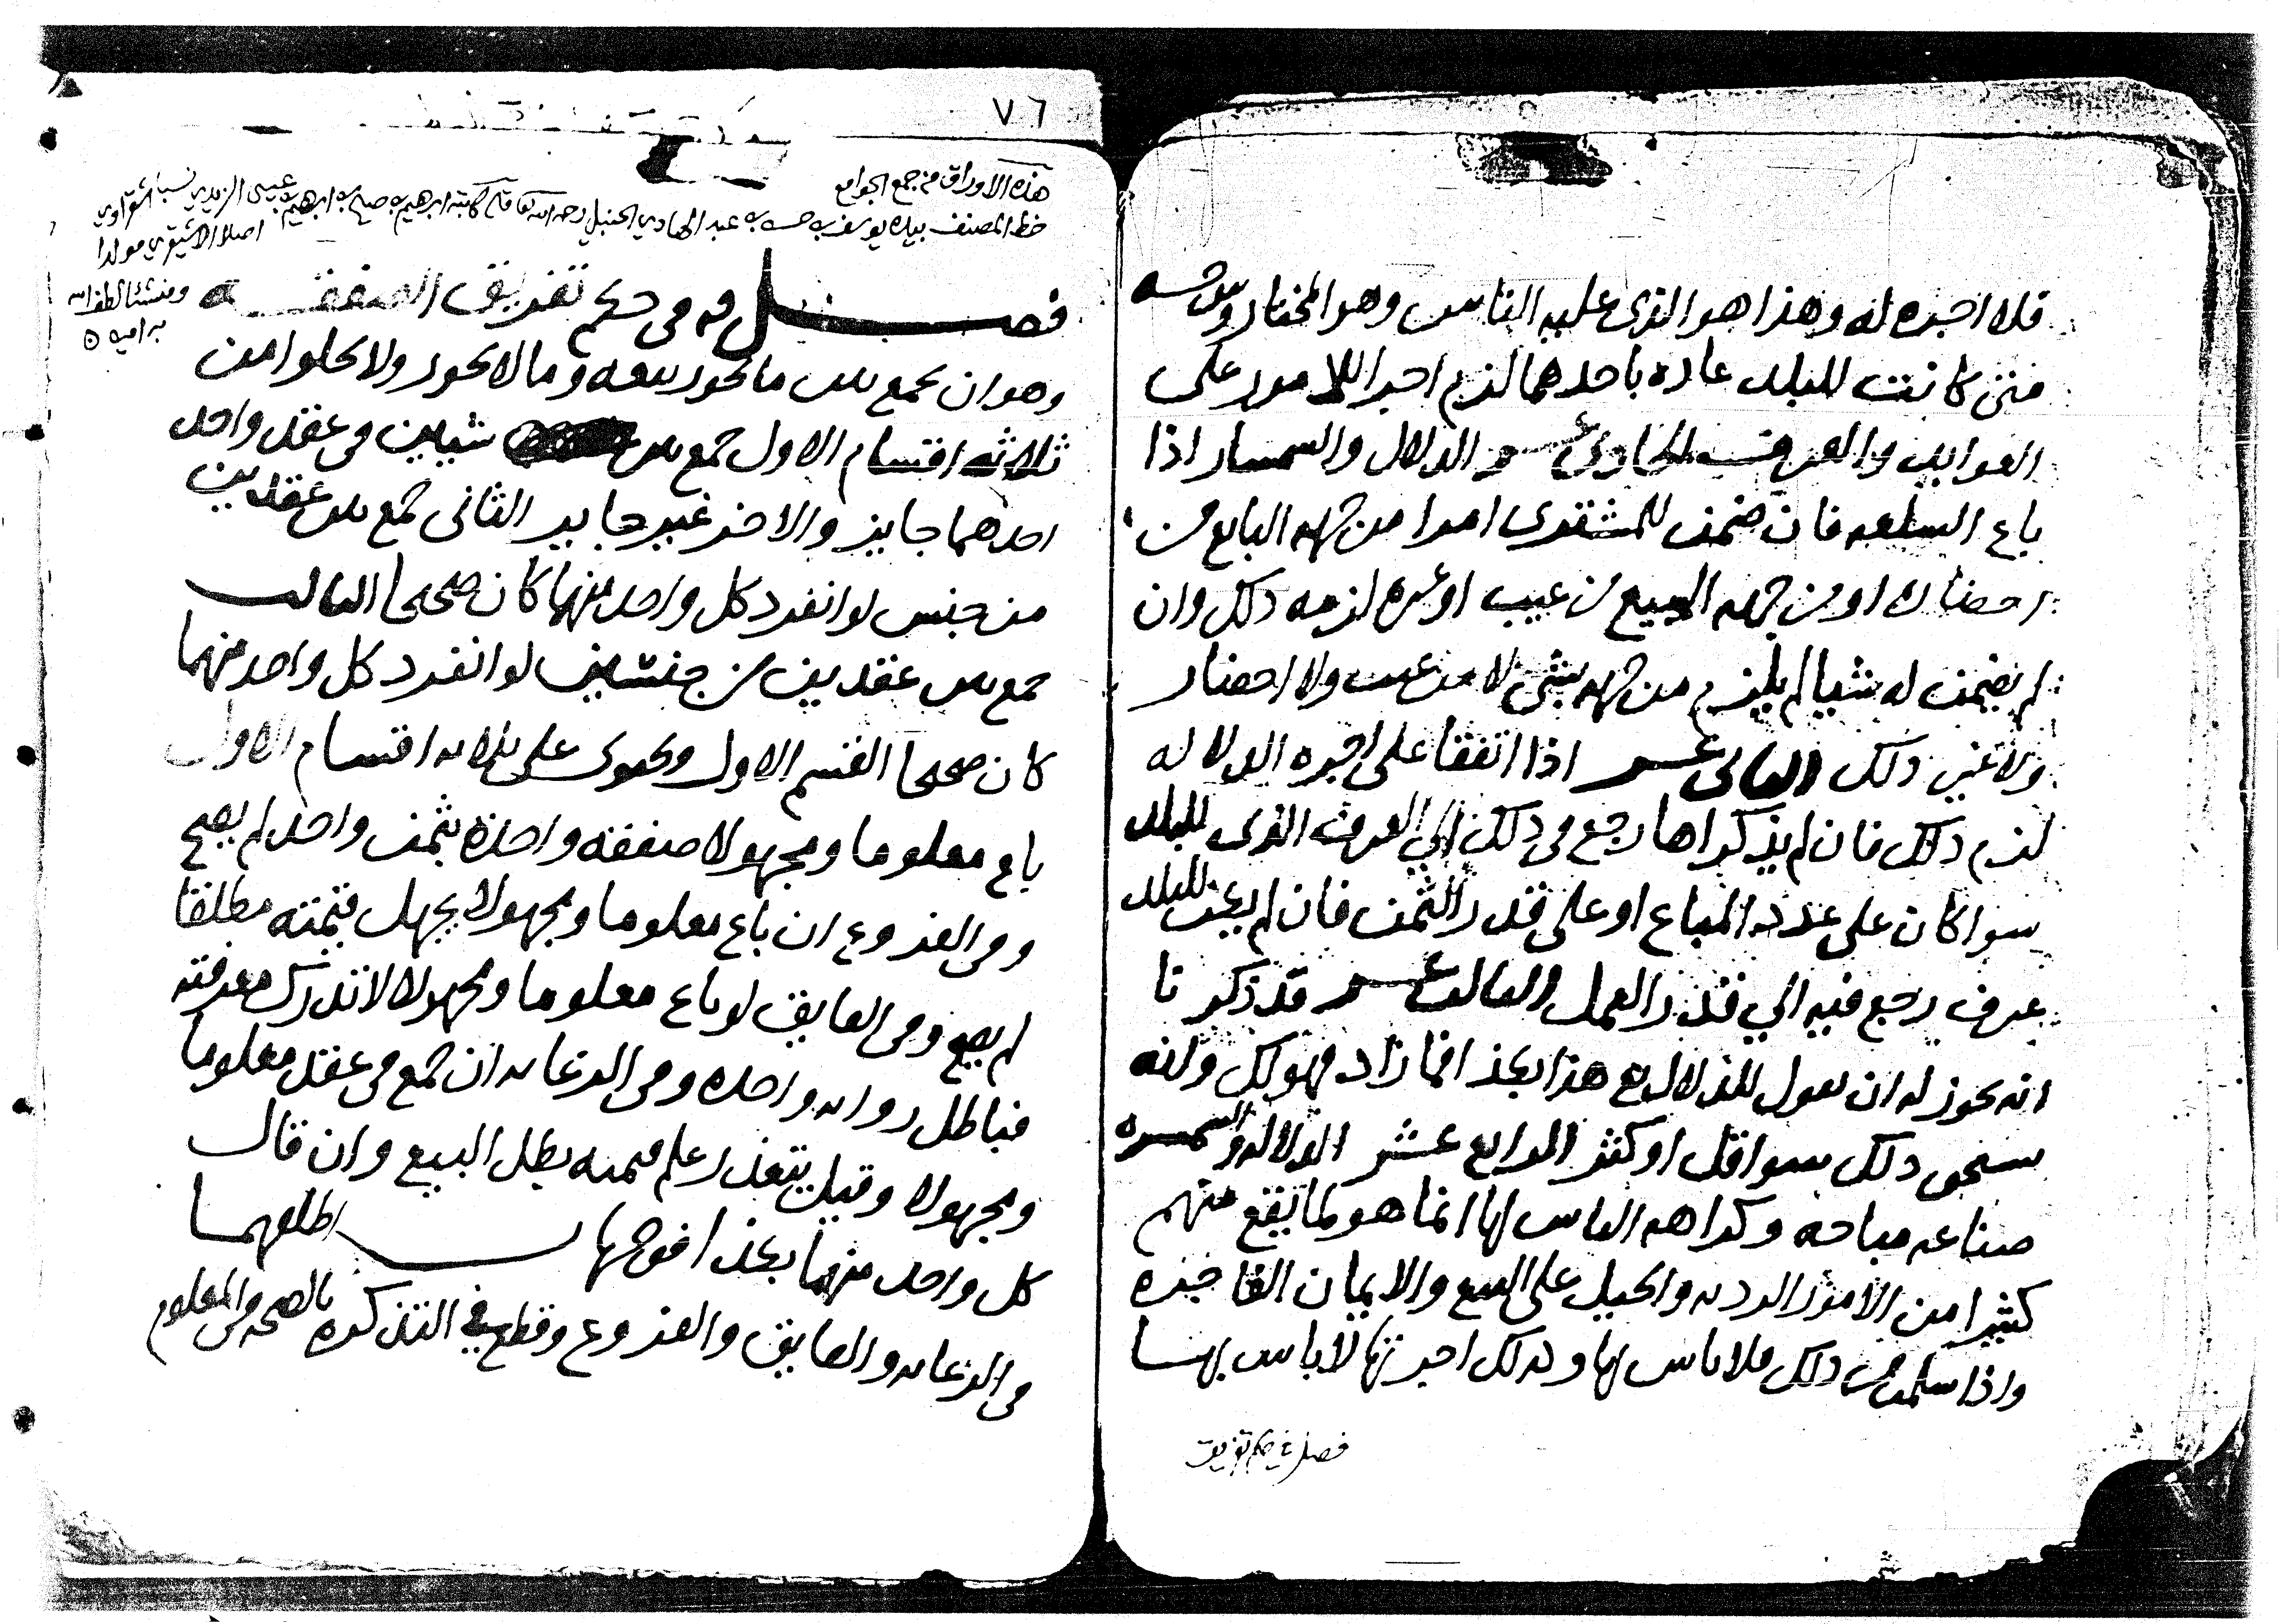 فلا اجره له وهذا هو الذى عليه الناس وهو المختار
فمتى كانت للبلد عاده باحدهما لزم اجرا الامور على
العوايد والعرف الحادى عشر الدلال والسمسار اذا
باع السلعه فان ضمن للمشترى امرا من جهه البايع من
احضار او من جهه المبيع من عيب او غيره لزمه ذلك وان
لم يضمن له شيا لم يلزم من جهه شى لا من عيب ولا احضار
ولا غير ذلك الثانى عشر اذا اتفقا على اجره الدلاله
لزم ذلك فان لم يذكراها رجع فى ذلك الي العرف الذى للبلد
سوا كان على عدد المباع او على قدر الثمن فان لم يكن للبلد
عرف رجع فيه الي قدر العمل الثالث عشر قد ذكرنا
انه يجوز له ان يقول للدلال بع هذا بكذا فما زاد فهو لك وانه
يستحق ذلك سوا قل او كثر الرابع عشر الدلاله والسمسره
صناعه مباحه وكراهه الناس لها انما هو لما يقع منهم
كثيرا من الامور الرديه والحيل على البيع والايمان الفاجره
واذا سلمت من ذلك فلا باس بها وكذلك اجرتها لا باس بها
فصل في حكم تفريق
٧٦
هذه الاوراق من جمع الجوامع
خط المصنف بيده يوسف بن حسن بن عبد الهادي الحنبلي رحمه الله تعا قاله كاتبه ابرهيم بن صالح بن ابرهيم بن عيسى الزيدي نسبا الشقراوي
اصلا الاشيقري مولدا
ومنشئا لطف الله
به امين ٥
فصل فى حكم تفريق الصفقه
وهو ان يجمع بين ما يجوز بيعه وما لا يجوز ولا يخلوا من
ثلاثه اقسام الاول جمع بين شيين فى عقد واحد
احدهما جايز والاخر غير جايز الثانى جمع بين عقدين
من جنس لو انفرد كل واحد منهما كان صحيحا الثالث
جمع بين عقدين من جنسين لو انفرد كل واحد منهما
كان صحيحا القسم الاول ويحتوى على ثلاثه اقسام الاول
باع معلوما ومجهولا صفقه واحدة بثمن واحد لم يصح
وفى الفروع ان باع معلوما ومجهولا يجهل قيمته مطلقا
لم يصح وفى الفايق لو باع معلوما ومجهولا لا تدرك معرفته
فباطل روايه واحده وفى الرعايه ان جمع فى عقد معلوما
ومجهولا وقيل يتعذر علم قيمته بطل البيع وان قال
كل واحد منهما بكذا فوجهان اطلقهما
فى الرعايه والفايق والفروع وقطع في التذكره بالصحه فى المعلوم